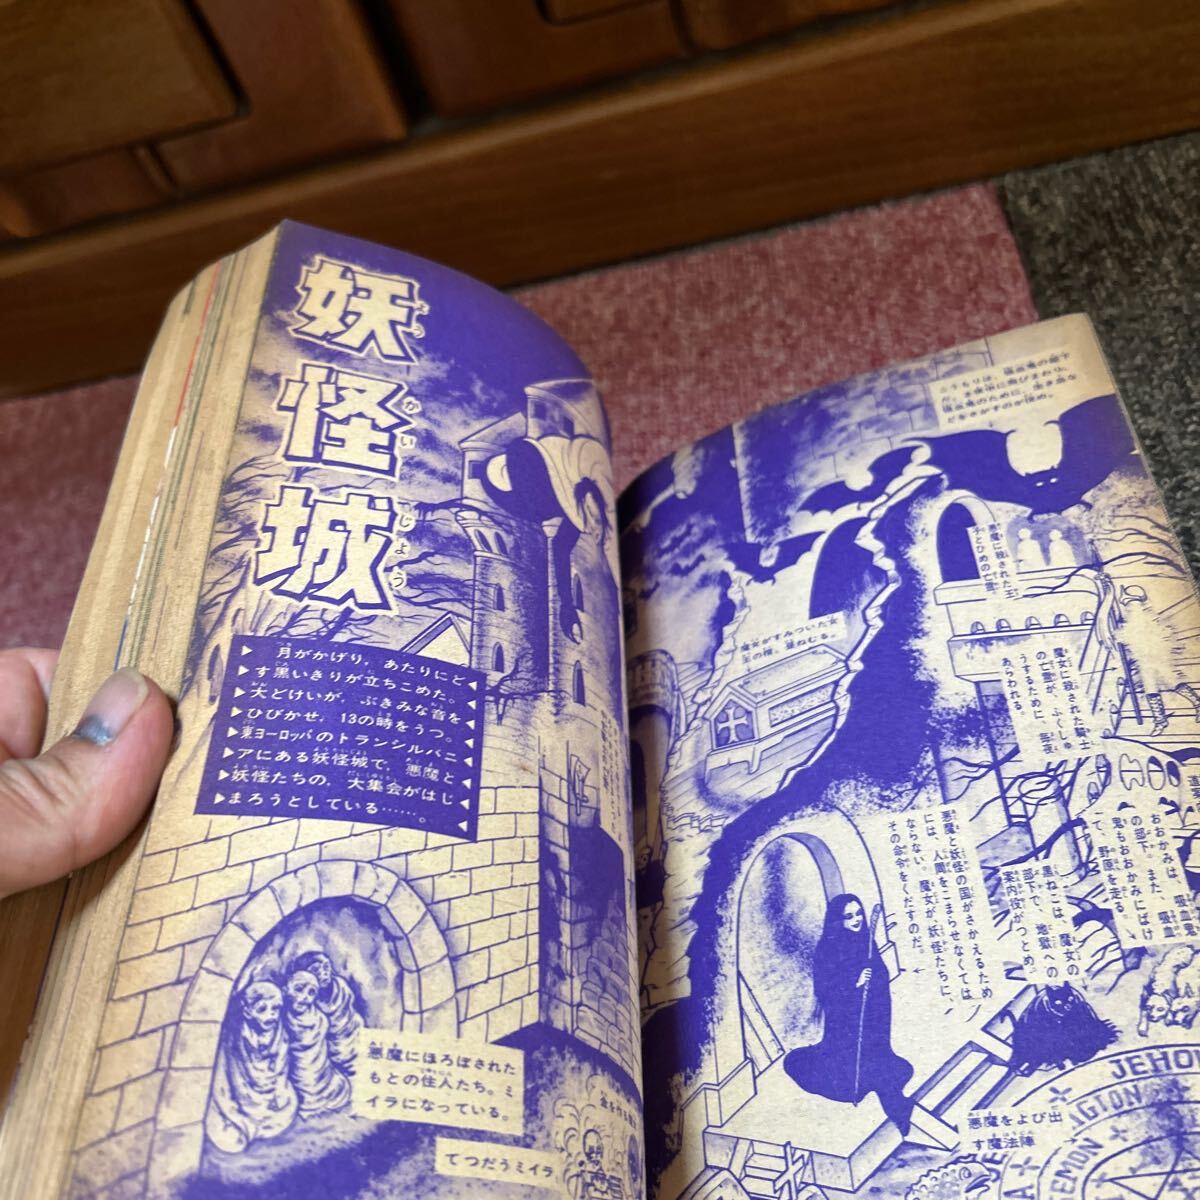 妖怪城
ようかいじょう
月がかげり，あたりにど
す黒いきりが立ちこめた。
大どけいが，ぶきみな音を
ひびかせ，13の時をうつ。
東ヨーロッパのトランシルバニ
アにある妖怪城で，悪魔と
妖怪たちの，大集会がはじ
まろうとしている……。
悪魔にほろぼされた
もとの住人たち。ミ
イラになっている。
てつだうミイラ
こうもりは，吸血鬼の部下
だ。ま夜中に飛びまわり，
吸血鬼のために，生き血な
どをさがすのが役め。
悪魔に殺された王
子とひめの亡霊
魔女がすみついた女
王の棺。昼ねむる。
魔女に殺された騎士
の亡霊が，ふくしゅ
うするために，毎夜
あらわれる。
おおかみは，吸血鬼
の部下。また，吸血
鬼もおおかみにばけ
て，野原を走る。
黒ねこは，魔女の
部下で，地獄への
案内役がつとめ。
悪魔と妖怪の国がさかえるため
には，人間をこまらせなくては
ならない。魔女が妖怪たちに，
その命令をくだすのだ。
悪魔をよび出
す魔法陣
JEHO